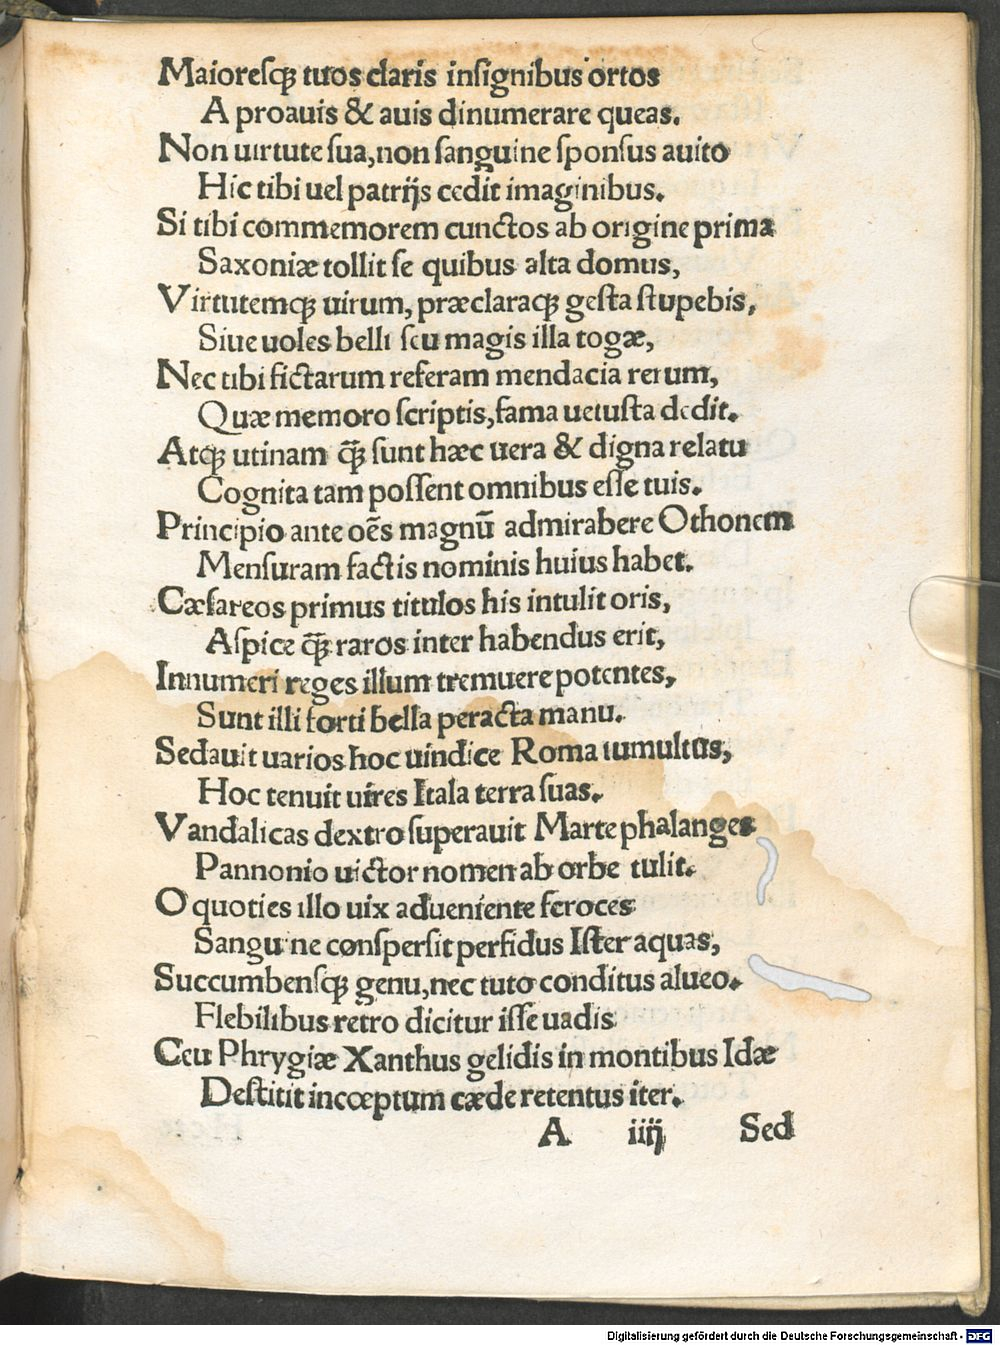 Maioreſqꝫ tuos claris inſignibus ortos
A proauis & auis dinumerare queas.
Non uirtute ſua, non ſanguine ſponſus auito
Hic tibi uel patrijs cedit imaginibus.
Si tibi commemorem cunctos ab origine prima
Saxoniæ tollit ſe quibus alta domus,
Virtutemqꝫ uirum, præclaraqꝫ geſta ſtupebis,
Siue uoles belli ſeu magis illa togæ,
Nec tibi fictarum referam mendacia rerum,
Quæ memoro ſcriptis, fama uetuſta dedit.
Atqꝫ utinam q̄ꝫ ſunt hæc uera & digna relatu
Cognita tam poſſent omnibus eſſe tuis.
Principio ante oēs magnū admirabere Othonem
Menſuram factis nominis huius habet.
Cæſareos primus titulos his intulit oris,
Aſpice q̄ꝫ raros inter habendus erit,
Innumeri reges illum tremuere potentes,
Sunt illi forti bella peracta manu.
Sedauit uarios hoc uindice Roma tumultus,
Hoc tenuit uires Itala terra ſuas.
Vandalicas dextro ſuperauit Marte phalanges
Pannonio uictor nomen ab orbe tulit.
O quoties illo uix adueniente feroces
Sanguine conſperſit perfidus Iſter aquas,
Succumbenſqꝫ genu, nec tuto conditus alueo.
Flebilibus retro dicitur iſſe uadis
Ceu Phrygiæ Xanthus gelidis in montibus Idæ
Deſtitit incœptum cæde retentus iter.
A iiij Sed
Digitalisierung gefördert durch die Deutsche Forschungsgemeinschaft - DFG